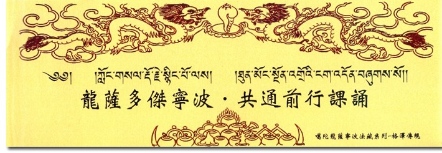 ༄༅། །ཀློང་གསལ་རྡོ་རྗེ་སྙིང་པོ་ལས། །ཐུན་མོང་སྔོན་འགྲོའི་ངག་འདོན་བཞུགས་སོ།།
龍薩多傑寧波・共通前行課誦
噶陀龍薩寧波法藏系列-格澤傳統